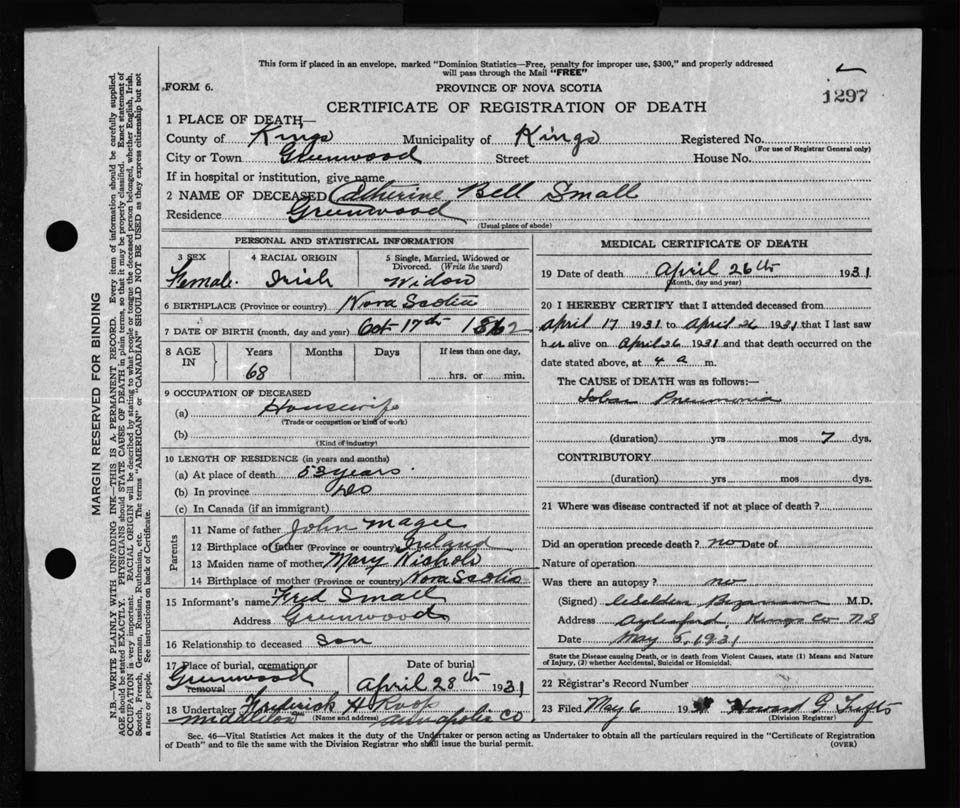 This form if placed in an envelope, marked "Dominion Statistics—Free, penalty for improper use, $300," and properly addressed
will pass through the Mail "FREE"
FORM 6.
PROVINCE OF NOVA SCOTIA
1297
CERTIFICATE OF REGISTRATION OF DEATH
1 PLACE OF DEATH—
County of Kings Municipality of Kings Registered No.
(For use of Registrar General only)
City or Town Greenwood Street House No.
If in hospital or institution, give name
2 NAME OF DECEASED Catherine Bell Small
Residence Greenwood
(Usual place of abode)
PERSONAL AND STATISTICAL INFORMATION
3 SEX 4 RACIAL ORIGIN 5 Single, Married, Widowed or Divorced. (Write the word)
Female Irish Widow
6 BIRTHPLACE (Province or country) Nova Scotia
7 DATE OF BIRTH (month, day and year) Oct 17th 1862
8 AGE IN Years Months Days If less than one day,
68 hrs. or min.
9 OCCUPATION OF DECEASED
(a) Housewife
(Trade or occupation or kind of work)
(b)
(Kind of industry)
10 LENGTH OF RESIDENCE (in years and months)
(a) At place of death 53 years
(b) In province Do
(c) In Canada (if an immigrant)
Parents
11 Name of father John Magee
12 Birthplace of father (Province or country) Ireland
13 Maiden name of mother Mary Nichols
14 Birthplace of mother (Province or country) Nova Scotia
15 Informant's name Fred Small
Address Greenwood
16 Relationship to deceased Son
17 Place of burial, cremation or removal Date of burial
Greenwood April 28th 1931
18 Undertaker Frederick H Roop
Middleton (Name and address) Annapolis Co
MEDICAL CERTIFICATE OF DEATH
19 Date of death April 26th 1931
(Month, day and year)
20 I HEREBY CERTIFY that I attended deceased from
April 17 1931 to April 26 1931 that I last saw
her alive on April 26 1931 and that death occurred on the
date stated above, at 4 a m.
The CAUSE of DEATH was as follows:—
Lobar Pneumonia
(duration) yrs mos 7 dys.
CONTRIBUTORY
(duration) yrs mos dys.
21 Where was disease contracted if not at place of death?
Did an operation precede death? no Date of
Nature of operation
Was there an autopsy? no
(Signed) M.D.
Address Aylesford Kings Co N S
Date May 5, 1931
State the Disease causing Death, or in death from Violent Causes, state (1) Means and Nature
of Injury, (2) whether Accidental, Suicidal or Homicidal.
22 Registrar's Record Number
23 Filed May 6 1931 Howard G Tufts
(Division Registrar)
Sec. 46—Vital Statistics Act makes it the duty of the Undertaker or person acting as Undertaker to obtain all the particulars required in the "Certificate of Registration
of Death" and to file the same with the Division Registrar who shall issue the burial permit.
(OVER)
MARGIN RESERVED FOR BINDING
N.B.—WRITE PLAINLY WITH UNFADING INK—THIS IS A PERMANENT RECORD. Every item of information should be carefully supplied.
AGE should be stated EXACTLY. PHYSICIANS should STATE CAUSE OF DEATH in plain terms, so that it may be properly classified. Exact statement of
OCCUPATION is very important. RACIAL ORIGIN will be described by stating to what people or tongue the deceased person belonged, whether English, Irish,
Scotch, French, German, Russian, Ruthenian, etc. The terms "AMERICAN" or "CANADIAN" SHOULD NOT BE USED as they express citizenship but not
a race or people. See instructions on back of Certificate.